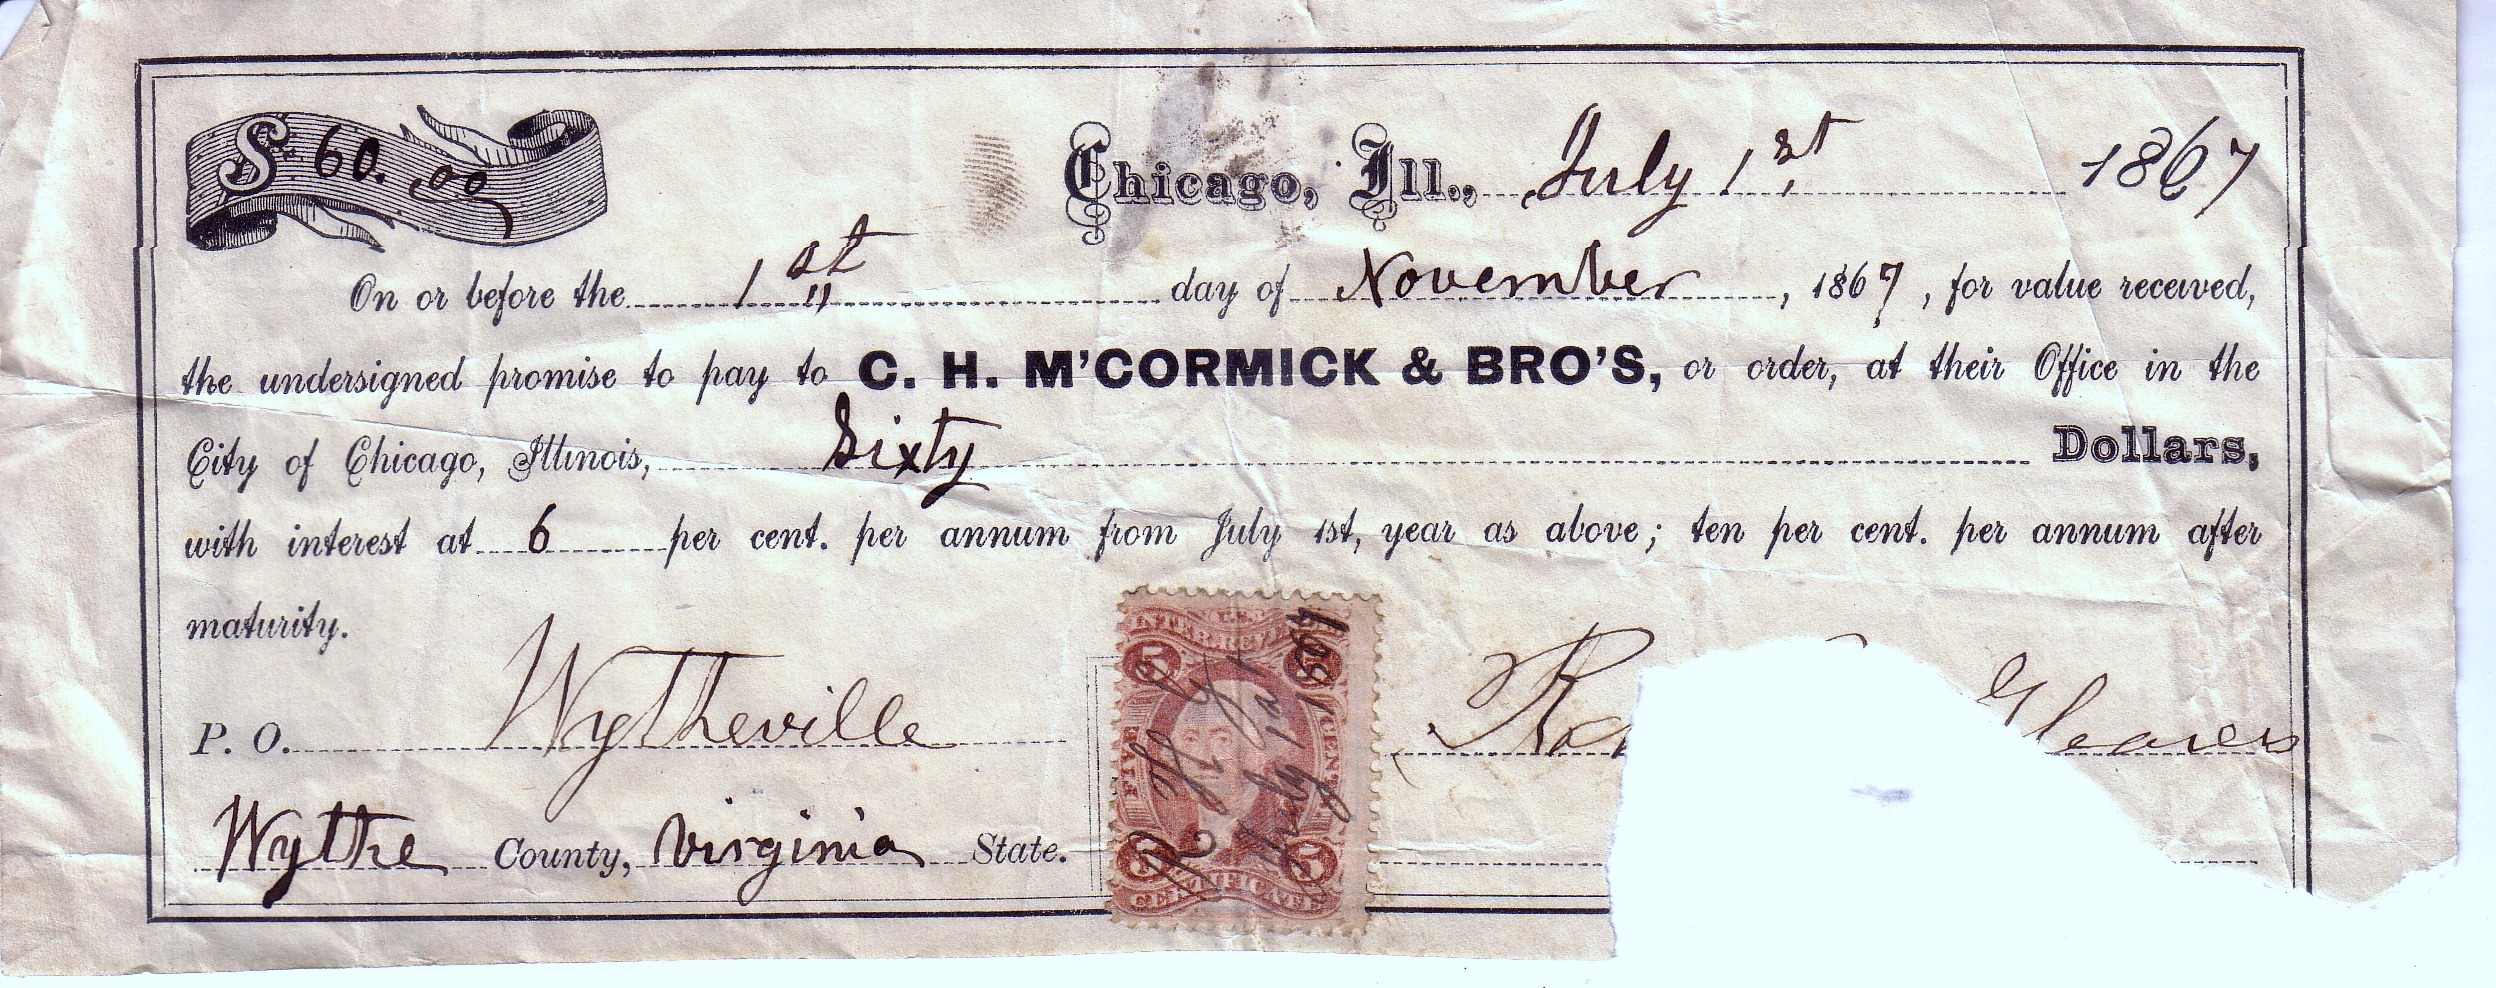 $ 60.00
Chicago, Ill., July 1st, 1867
On or before the 1st day of November, 1867, for value received,
the undersigned promise to pay to C. H. M'CORMICK & BRO'S, or order, at their Office in the
City of Chicago, Illinois, Sixty Dollars,
with interest at 6 per cent. per annum from July 1st, year as above; ten per cent. per annum after
maturity.
P. O. Wytheville
Wythe County, Virginia State.
U.S.
INTER. REVENUE
5 5
FIVE CENTS
July 1st 1867
5 5
CERTIFICATE